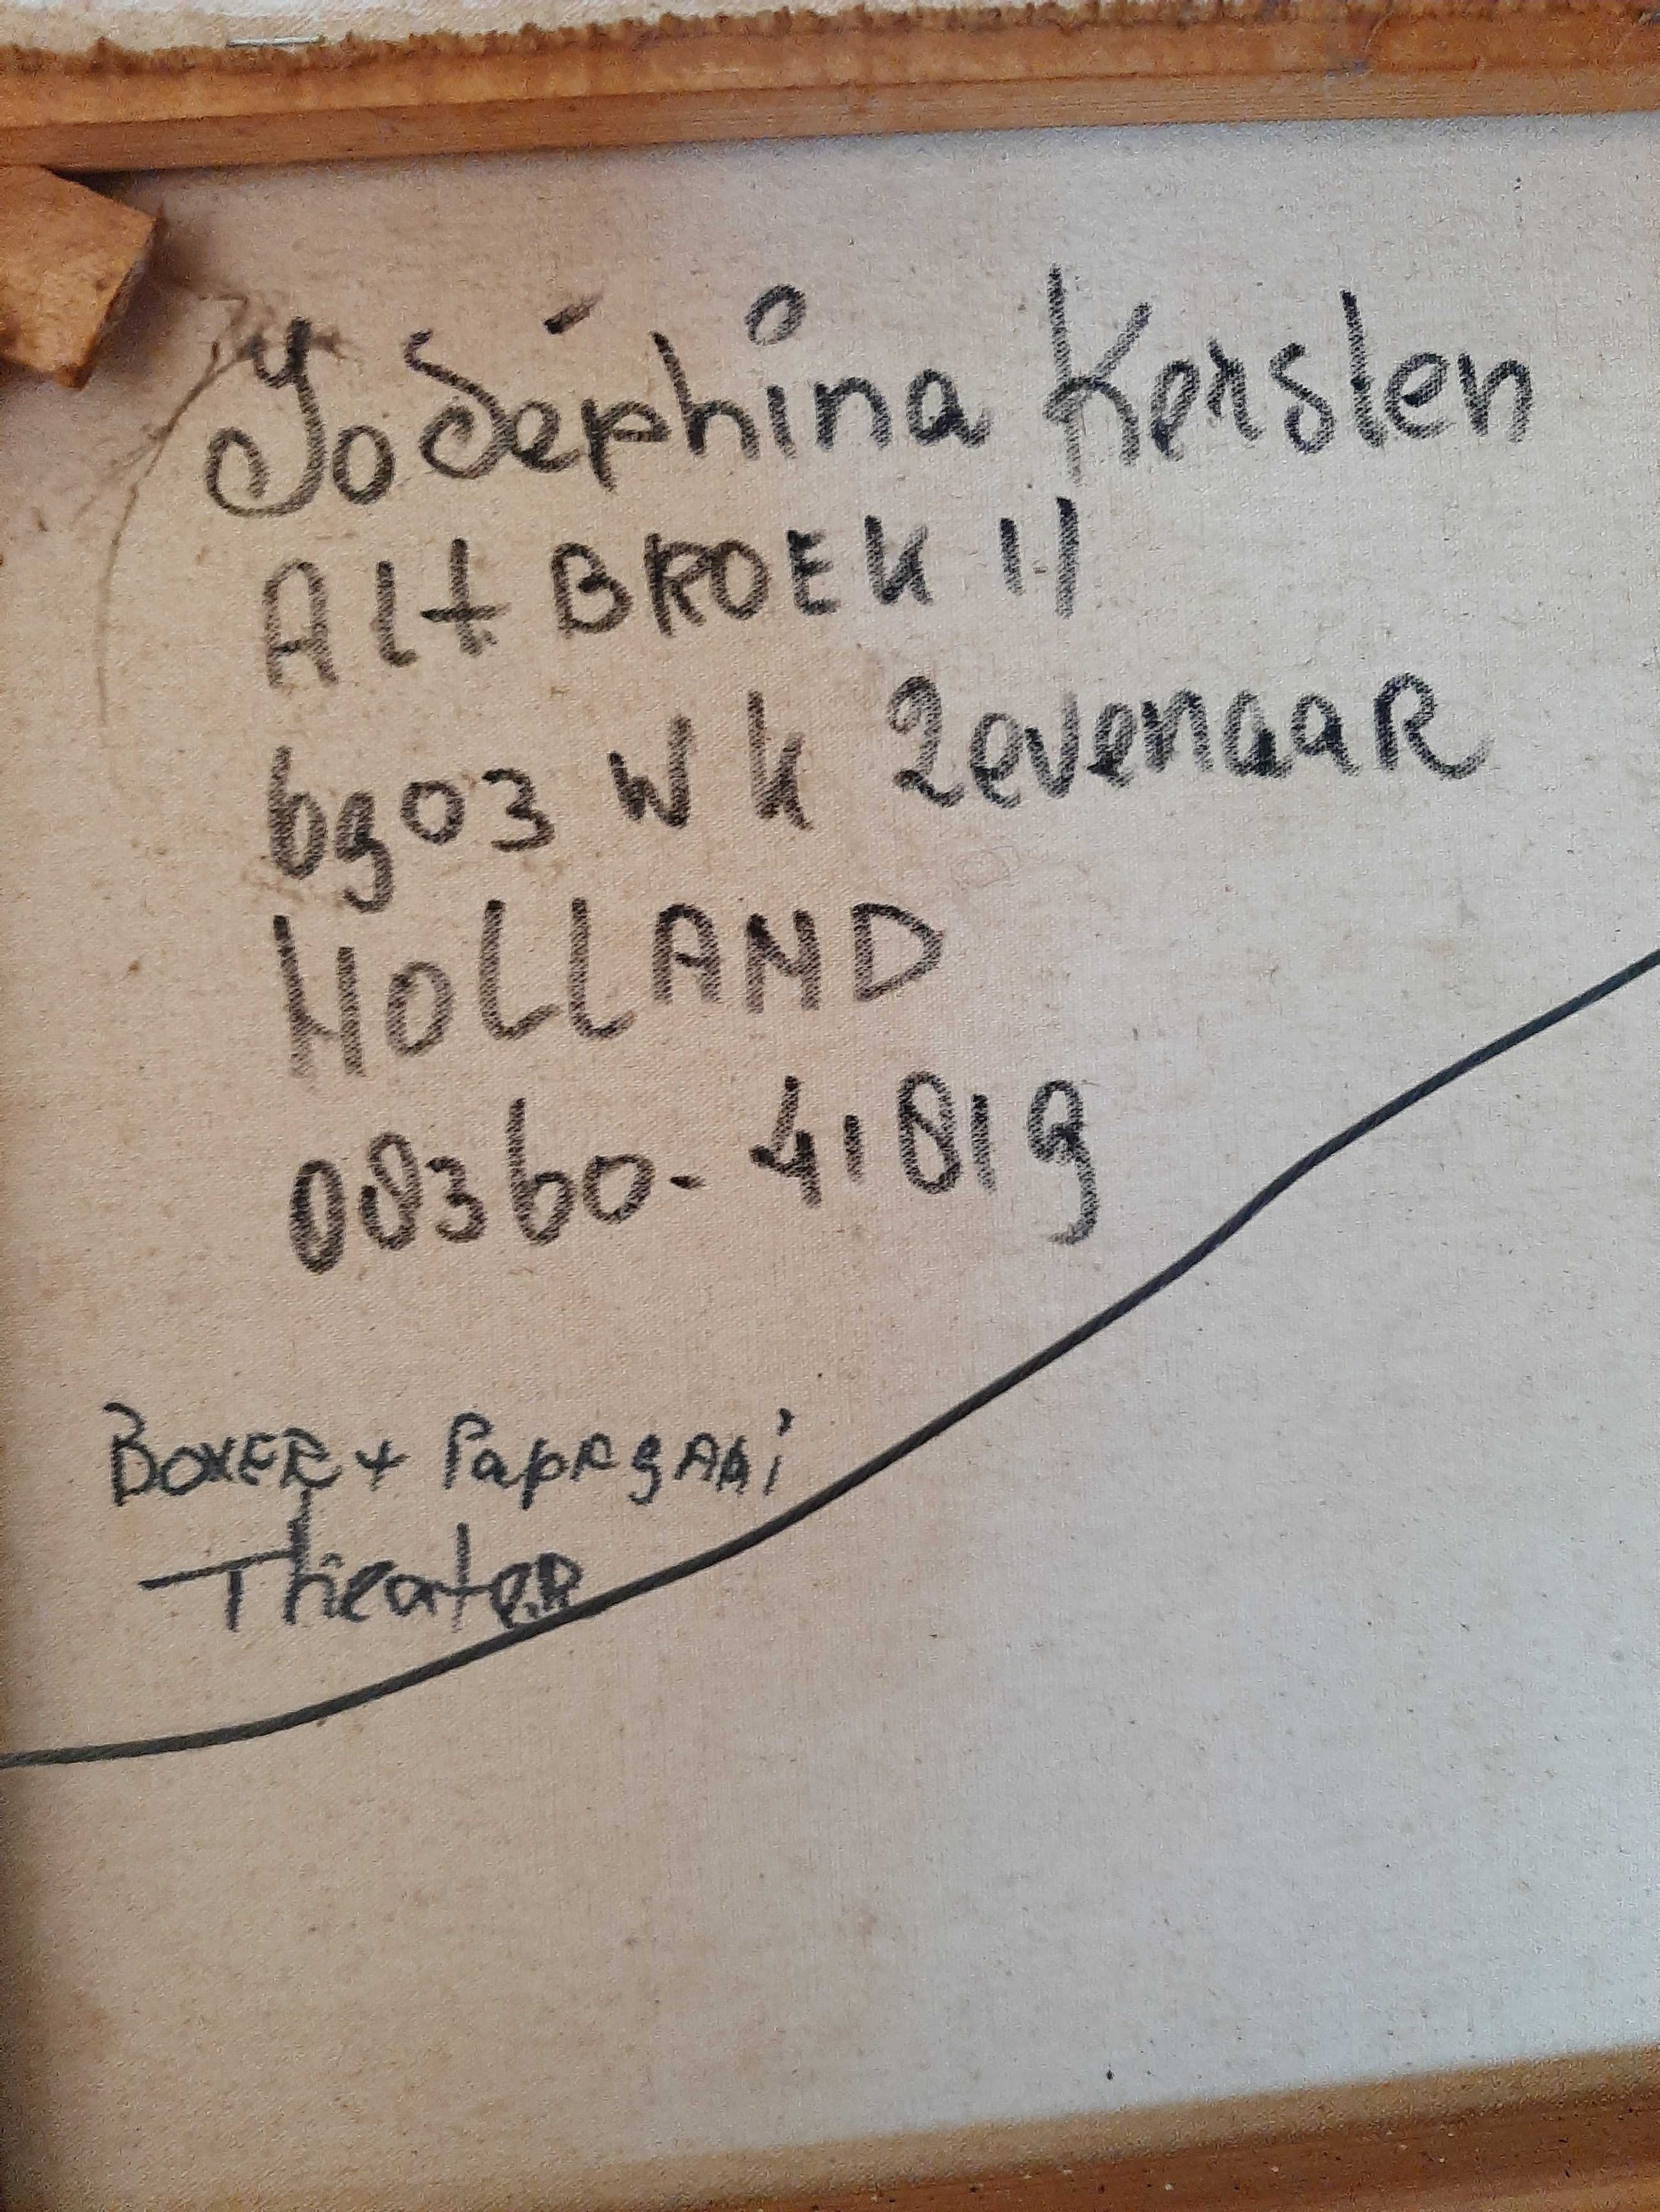 Joséphina Kersten
Alt BROEK 11
6903 WK Zevenaar
HOLLAND
08360-41819
BOXER + PapRgAAi
TheateR